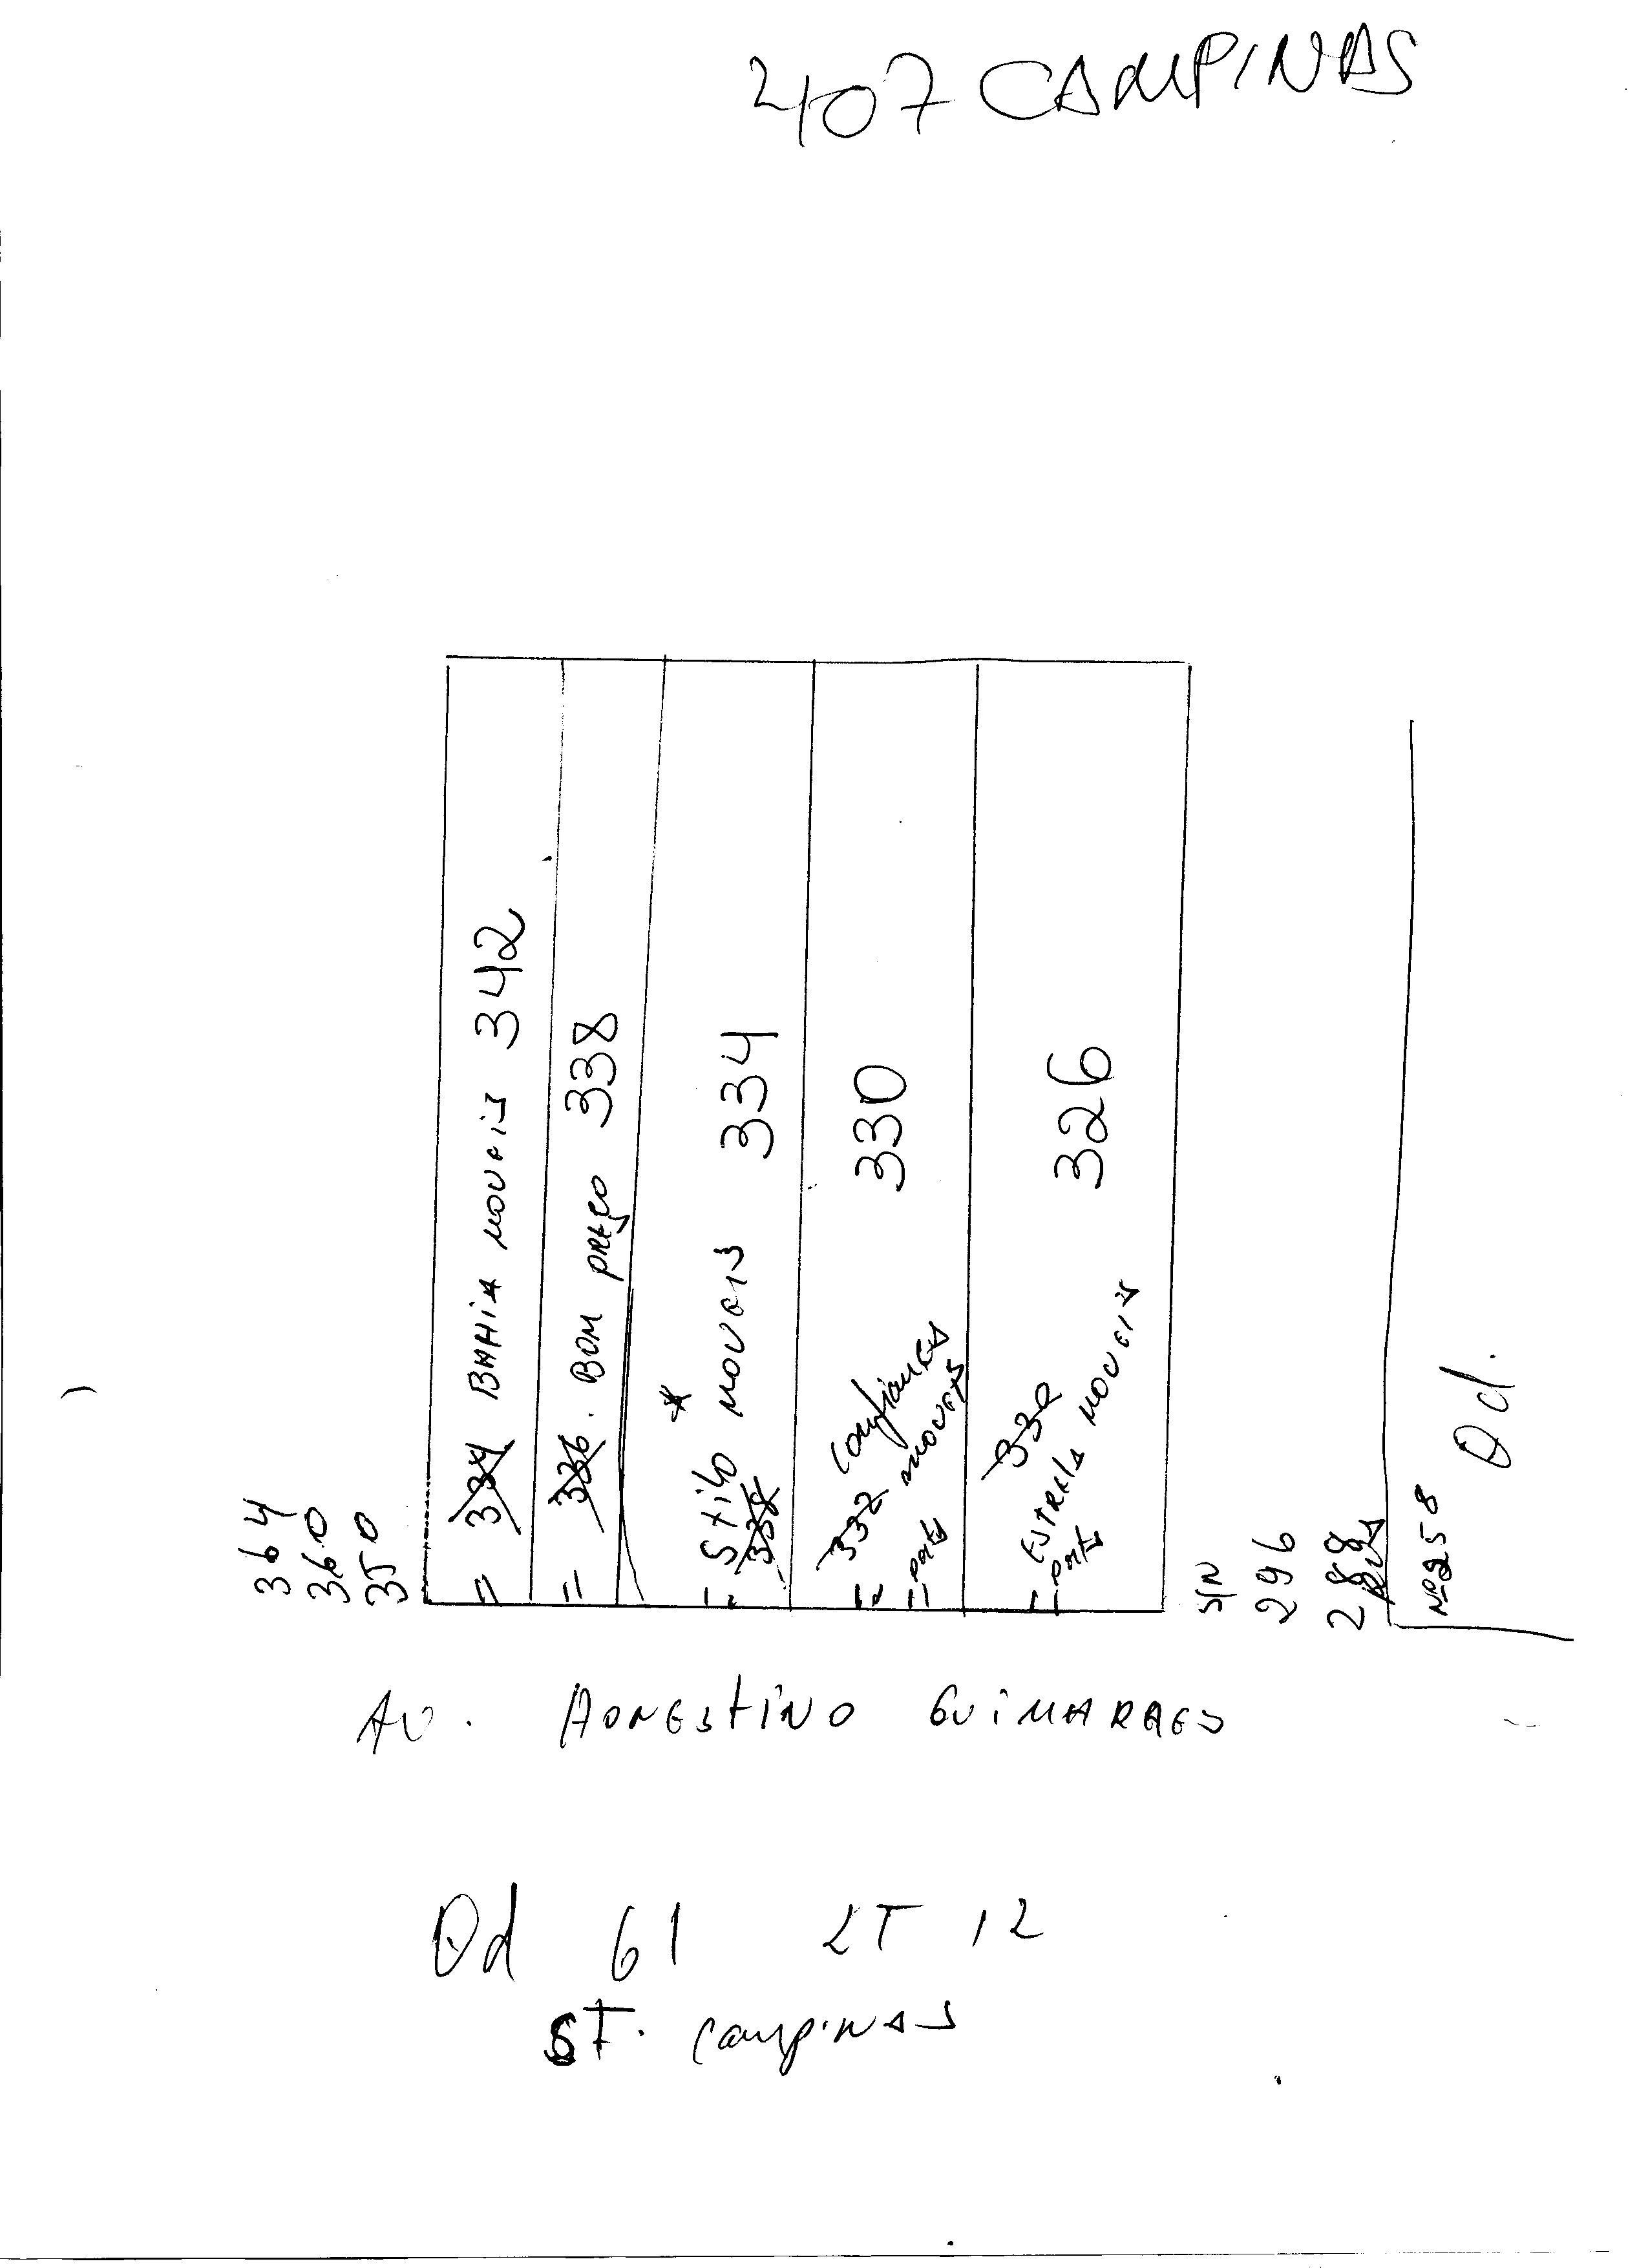 407 CAMPINAS
364
360
350
334 BAHIA MOVEIS 342
336. BOM PREÇO 338
*
Stilo MOVEIS 334
338
Confiança
332 MOVEIS 330
ports
330
ESTRELA MOVEIS 326
ports
S/N
296
288
Nº 258
Qd.
AV. HONESTINO GUIMARAES
Qd 61 LT 12
ST. Campinas